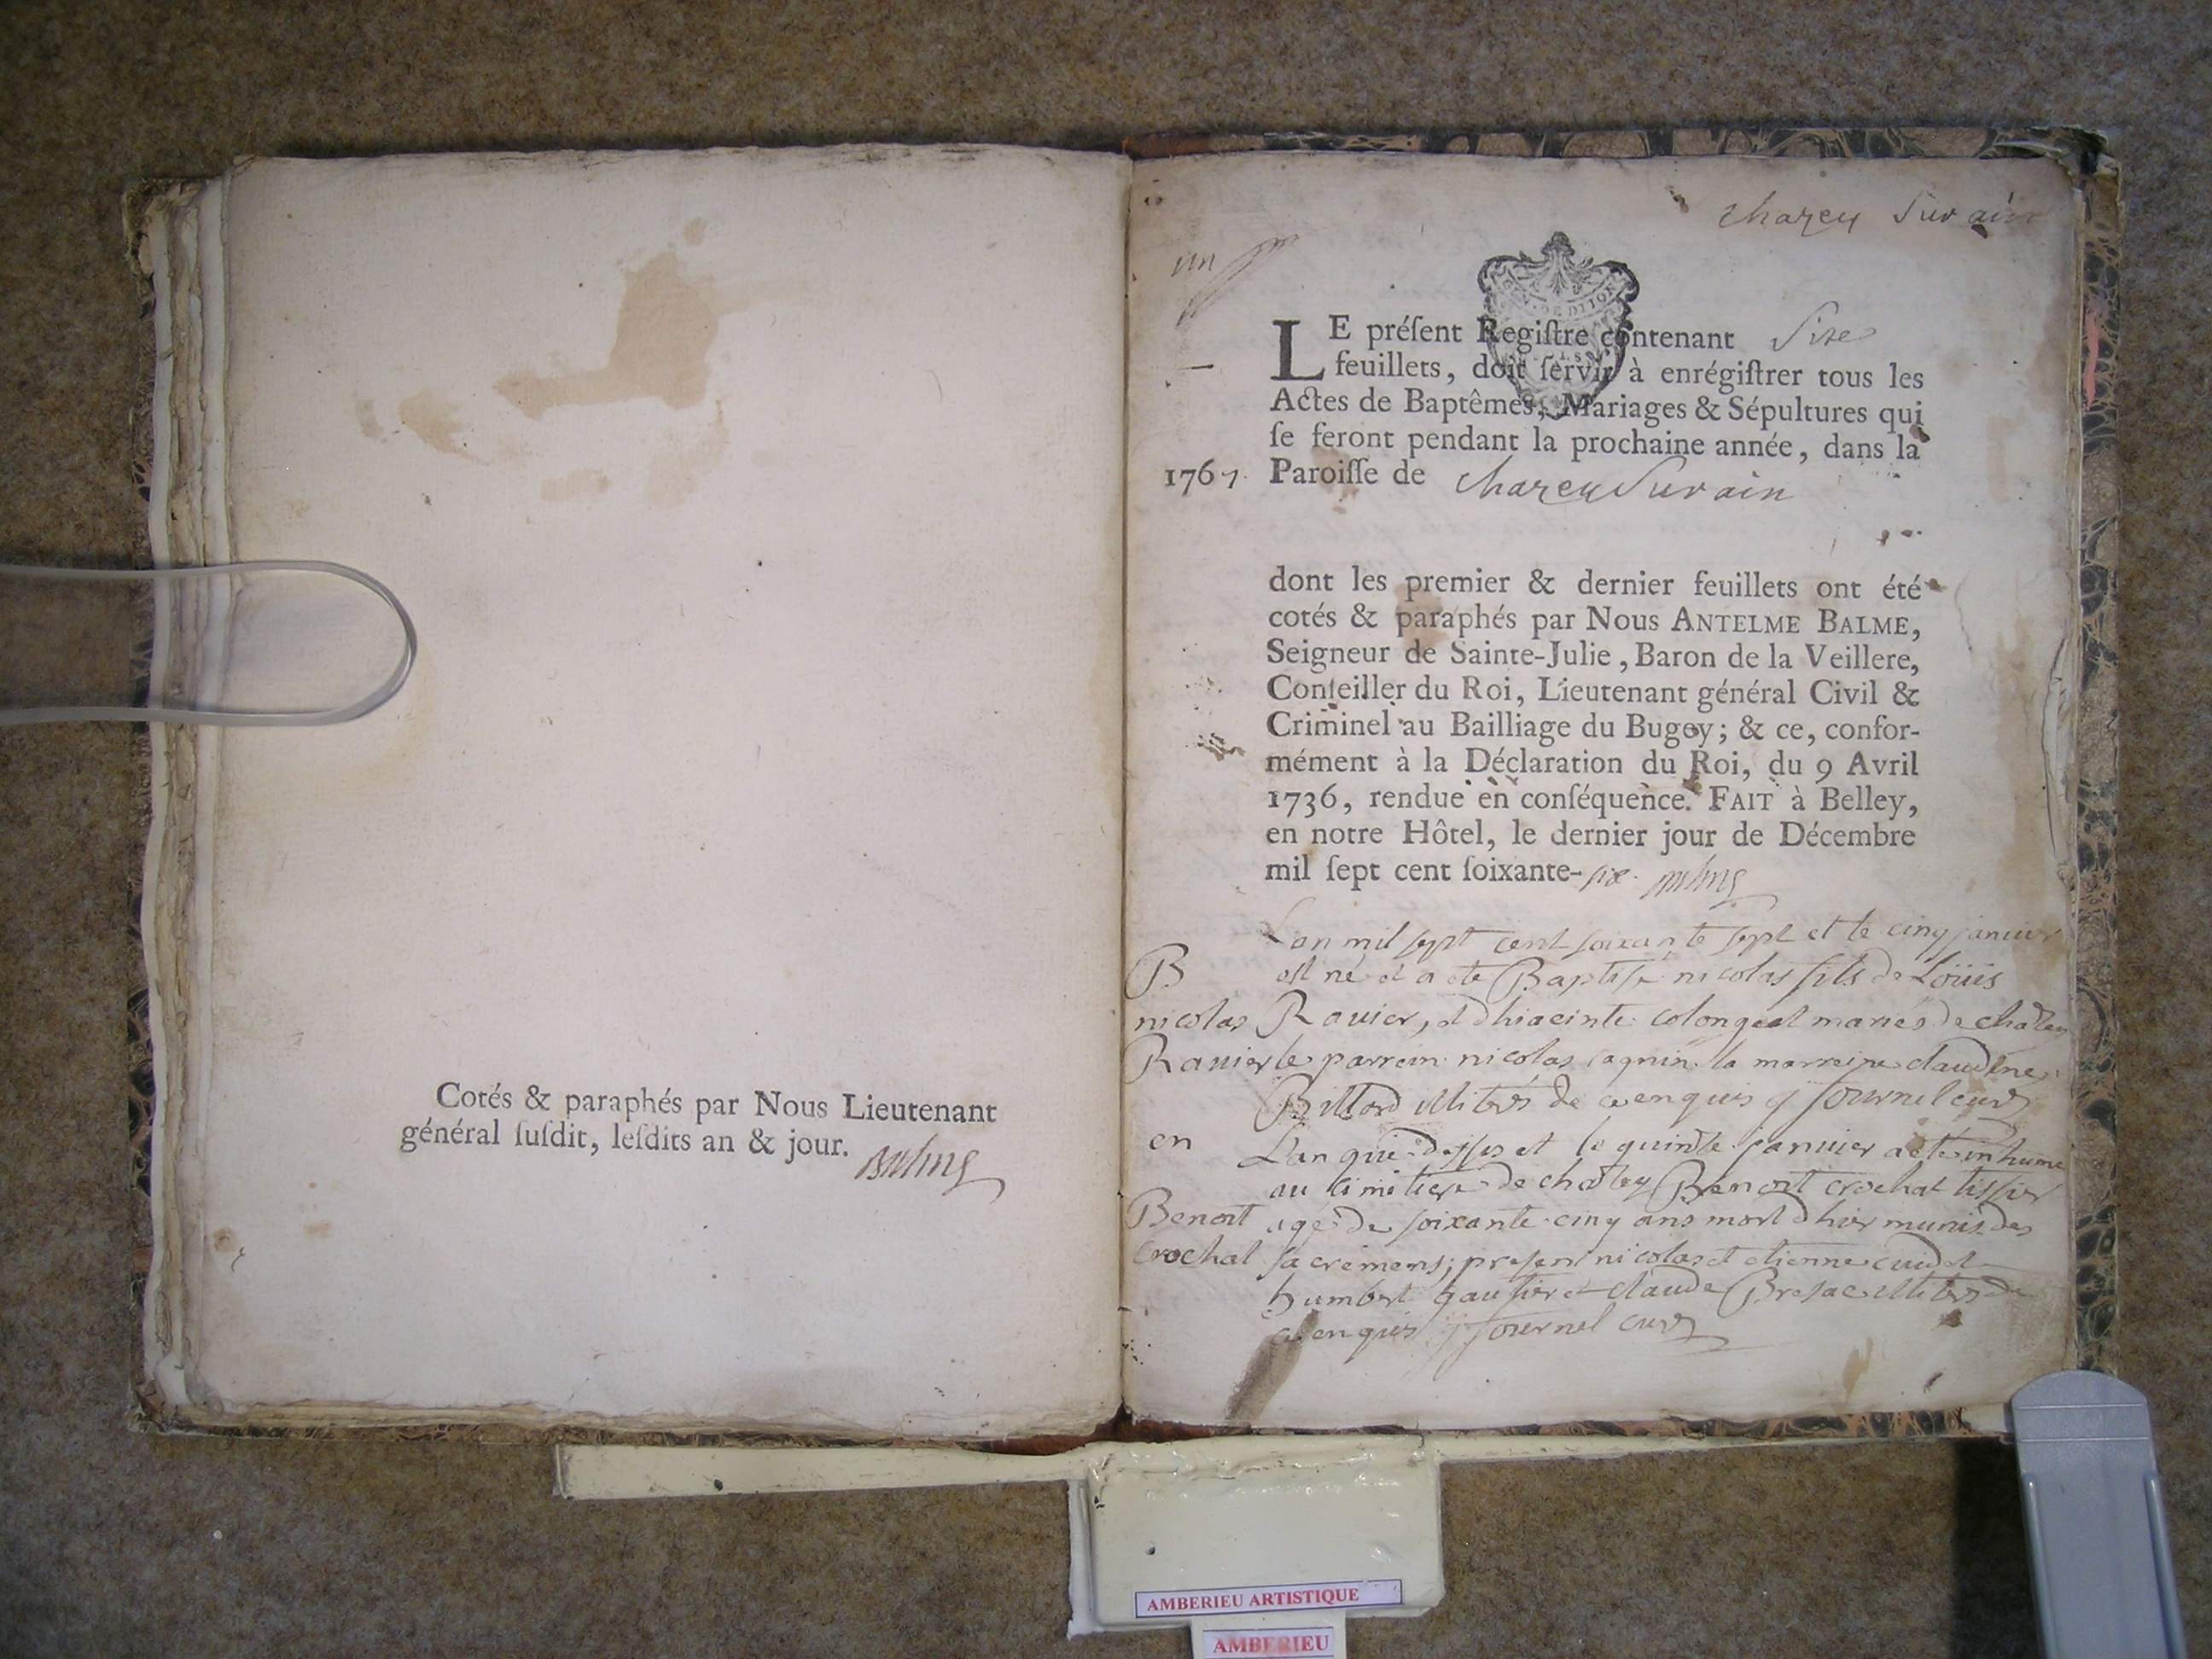 Cotés & paraphés par Nous Lieutenant
général ſuſdit, leſdits an & jour.
chazey Sur ain
un
GEN. DE DIJON
LE préſent Regiſtre contenant Sixe
feuillets, doit ſervir à enrégiſtrer tous les
Actes de Baptêmes, Mariages & Sépultures qui
ſe feront pendant la prochaine année, dans la
1767 Paroiſſe de chazey Sur ain
dont les premier & dernier feuillets ont été
cotés & paraphés par Nous ANTELME BALME,
Seigneur de Sainte-Julie, Baron de la Veillere,
Conſeiller du Roi, Lieutenant général Civil &
Criminel au Bailliage du Bugey; & ce, confor-
mément à la Déclaration du Roi, du 9 Avril
1736, rendue en conſéquence. FAIT à Belley,
en notre Hôtel, le dernier jour de Décembre
mil ſept cent ſoixante-six.
L'an mil sept cent soixante sept et le cinq janvier
B
est né et a ete Baptisé nicolas fils de Loüis
nicolas
Ravier, et dhiacinte colonge mariés de
Ravier
le parrein nicolas la marreine claudine
Billiard illitrés de ce enquis journel curé
en
L'an que dessus et le quinze janvier a ete inhumé
au cimitiere de Benoit crochat tissier
Benoit
agé de soixante cinq ans mort dhier munis des
Crochat
sacremens; presens nicolas et etienne
humbert gautier et claude illitrés de
ce enquis journel curé
AMBERIEU ARTISTIQUE
AMBERIEU